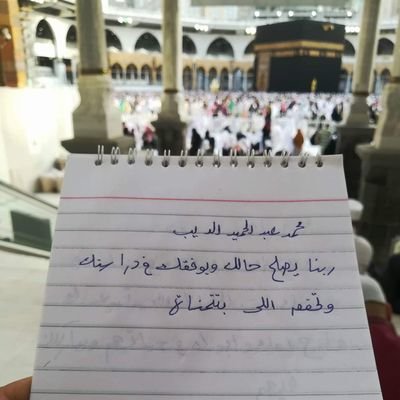 محمد عبد الحميد الديب
ربنا يصلح حالك ويوفقك في دراستك
وتحقق اللى بتتمناه